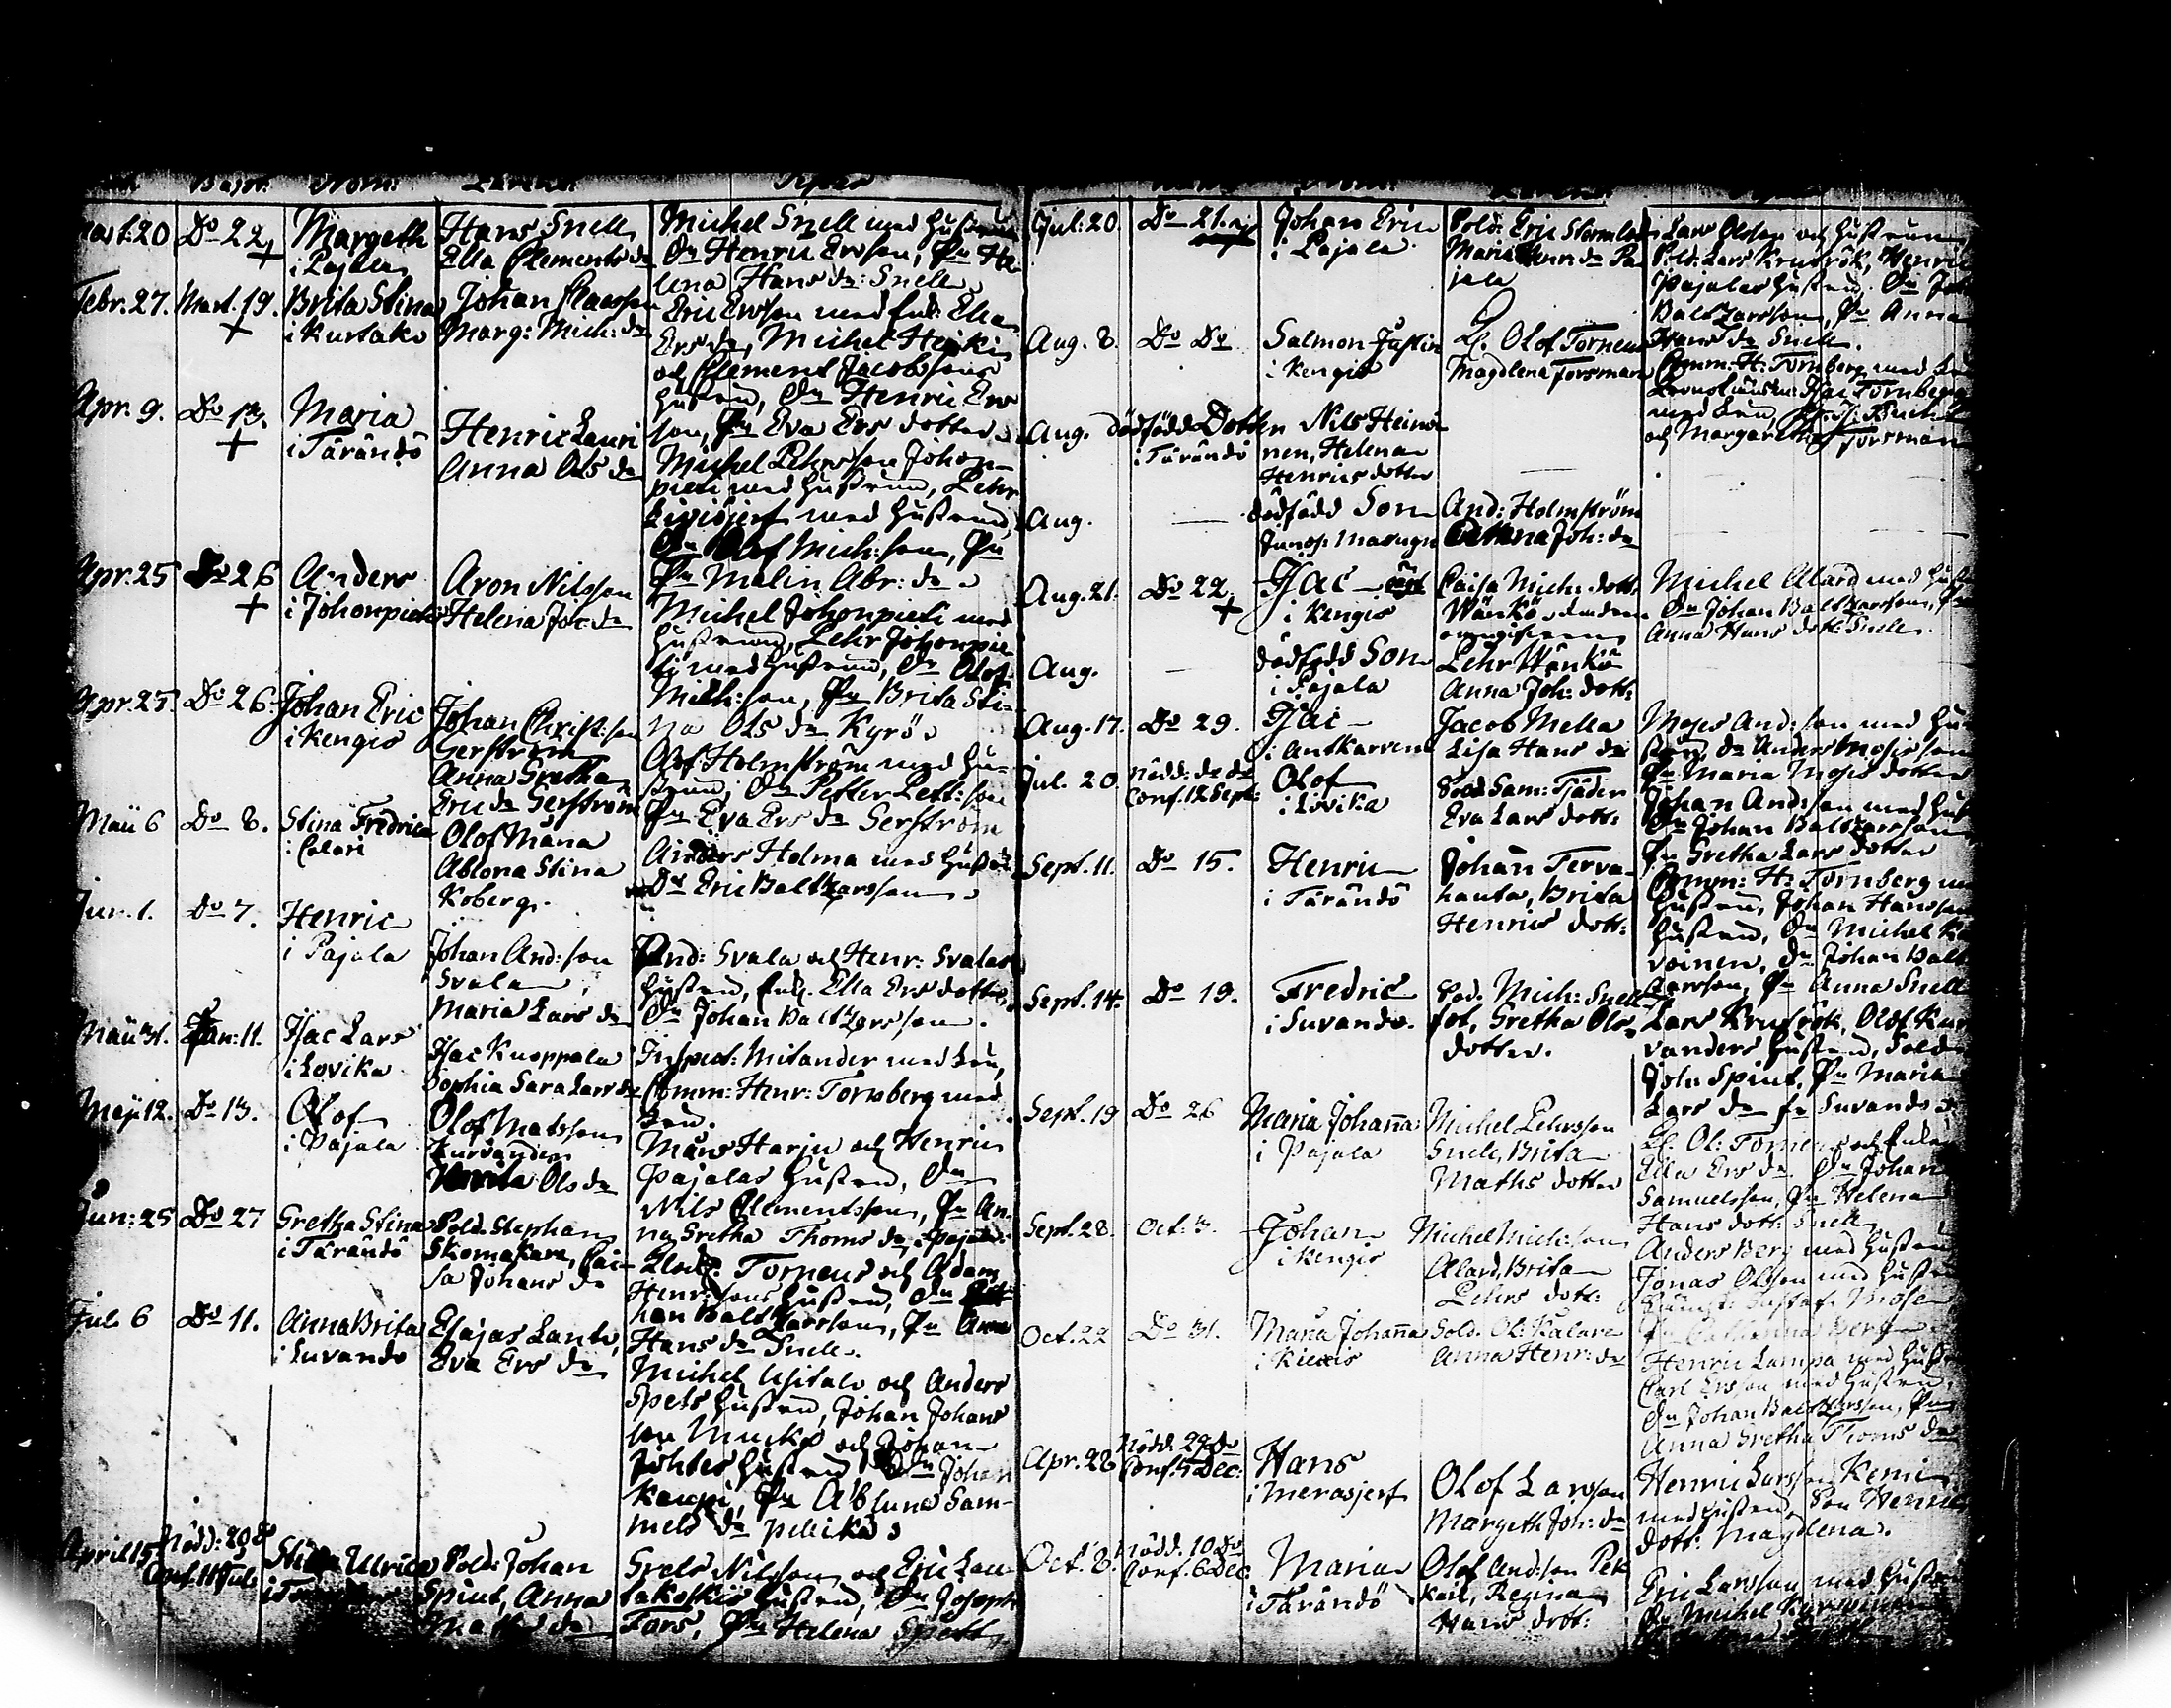 Mart. 20 Do 22 Margeth i Pajala Hans Snell Ella Clements da Michel Snell med Hustru
Dn Henric Ersson, Pn He-
lena Hans da: Snell
Febr. 27. Mart. 19. Brita Stina i Kurtako Johan Claesson Marg: Mich: da Eric Ersson med Enk: Ella
Ers da, Michel Heikki
och Clement Jacobssons
Hustru, Dn Henric Ers
son, Pn Eva Ers dotter
Apr. 9. Do 13. Maria i Tärändö Henric Lauri Anna Ols da Michel Pehrsson Johon-
pieti med Hustru, Pehr
med Hustru,
Dn Olof Mich:son, Pn
Pn Malin Abr: da
Apr. 25 Do 26 Anders i Johonpieti Aron Nilsson Helena Joh: da Michel Johonpieti med
Hustru, Pehr Johonpie
ti med Hustru, Dn Olof
Mich:son, Pn Brita Sti-
na Ols da Kyrö
Apr. 25. Do 26. Johan Eric i Kengis Johan Christ:son Gerström Anna Gretha Eric da Gerström Olof Holmström med Hu-
stru, Dn Petter Pett:son
Pn Eva Ers da Gerström
Maii 6 Do 8. Stina Fredrica i Colari Olof Mana Ablona Stina Koberg. Anders Holma med Hustru
Dn Eric Baltzarsson
Jun. 1. Do 7. Henric i Pajala Johan And:son Svala Maria Lars da And: Svala och Henr: Svalas
Hustru, Enk. Ella Ers dotter,
Dn Johan Baltzarsson.
Maii 31. Jun: 11. Isac Lars i Lovika Isac Kuoppala Sophia Sara Lars da Inspect: Mitander med Fru,
Comm: Henr: Tornberg med
Fru.
Maji 12. Do 13. Olof i Pajala Olof Matsson Kurvander Ols da Måns Harju och Henric
Pajalas Hustru, Dn
Nils Clementsson, Pn An-
na Gretha Thoms da, Pajala
Jun: 25 Do 27 Gretha Stina i Tärändö Sold. Stephan Skomakare, Cai-
sa Johans da Torneus och Adam
Henr:sons Hustru, Dn Jo-
han Baltzarsson, Pn Anna
Hans da Snell.
Jul. 6 Do 11. Anna Brita i Suvando Esajas Lanto, Eva Ers da Michel Usitalo och Anders
Spets Hustru, Johan Johans
son Mucka och Johan
Hustru Dn Johan
Kaupi, Pn Abluna Sam-
mels da Pellika
April 15 Född: 20 Do Conf. 11 Jul. Ulrica Sold: Johan Spint, Anna Grels Nilsson och Eric Lau-
takoskis Hustru, Dn Joseph
Fors, Pn Helena Spett
Jul. 20. Do 21. Johan Eric i Pajala Sold: Eric Stormlod Maria Henr da Pa
jala Lars Olofson och Hustrun
Sold. Lars Krutrök, Henric
Pajalas Hustru. Dn Joh
Baltzarsson, Pn Anna
Hans da Snell.
Aug. 8. Do Do Salmon Justin i Kengis Cl. Olof Torneus Magdlena Forsman Comm: H: Tornberg med Fru
Isac Tornberg
med Fru,
och Margaretha Forsman
Aug. dödfödd Dotter i Tärändö Nils Heino
nen, Helena
Henrics dotter
Aug. — dödfödd Son Junos. Masugn And: Holmström Cathrina Joh: da
Aug. 21. Do 22 Isac oägt i Kengis Caisa Mich: dott: Wänkö Michel Alard med Hustru
Dn Johan Baltzarsson, Pn
Anna Hans dott: Snell.
Aug. — dödfödd Son i Pajala Pehr Wänkö Anna Joh: dott:
Aug. 17. Do 29. Isac i Antkarvens Jacob Mella Lisa Hans da Moses And:son med Hu
stru, Dn Anders Mosisson
Pn Maria Moses dotter
Jul. 20 nödd: de do Conf. 12 Sept: Olof i Lovika Sold Sam: Fjäder Eva Lars dott: Johan And:son med Hust
Dn Johan Baltzarsson
Pn Gretha Lars dotter
Sept. 11. Do 15. Henric i Tärändö Johan Terva-
hauta, Brita
Henrics dott: Comm: H: Tornberg med
Hustru, Johan Hansson
Hustru, Dn Michel Ko
voinen, Dn Johan Balt
zarsson, Pn Anna Snell
Sept. 14. Do 19. Fredric i Suvando. Sold. Mich: Snell
fot, Gretha Ols
dotter. Lars Krutrök, Olof Kur
vanders Hustru, Sold.
Joh. Spint, Pn Maria
Lars da fr Suvando
Sept. 19 Do 26 Maria Johanna i Pajala Michel Pehrsson
Snell, Brita
Maths dotter Cl. Ol: Torneus och Enkan
Ella Ers da Dn Johan
Samuelsson, Pn Helena
Hans dott: Snell
Sept. 28. Oct: 3. Johan i Kengis Michel Mich:son
Alard, Brita
Pehrs dott: Anders Berg med Hustru
Jonas Olsson med Hustru
Gustaf Mose
Pn Catharina Berg
Oct. 22 Do 31. Maria Johanna i Kiexis Sold. Ol: Kalare
Anna Henr: da Henric Lampa med Hustru
Carl Ersson med Hustru,
Dn Johan Baltzarsson, Pn
Anna Gretha Thoms da
Apr. 28 Nödd. 29 do Conf. 5 Dec: Hans i Merasjerf Olof Larsson
Margeth Joh: da Henric Larsson Kemi
med Hustru, Son Henric
dott: Magdlena.
Oct. 8. nödd. 10 Do Conf. 6 Dec: Maria i Tärändö Olof And:son Pek
kari, Regina
Hans dott: Eric Larsson med Hustru
Dn Michel